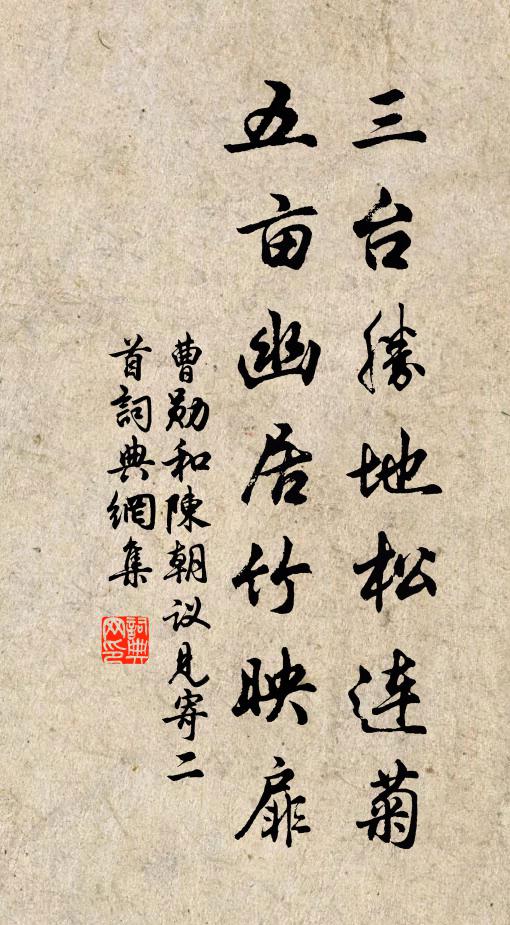 三台勝地松连菊
五亩幽居竹映扉
曹勋和陳朝议見寄二
首詞典網集
詞典
网印